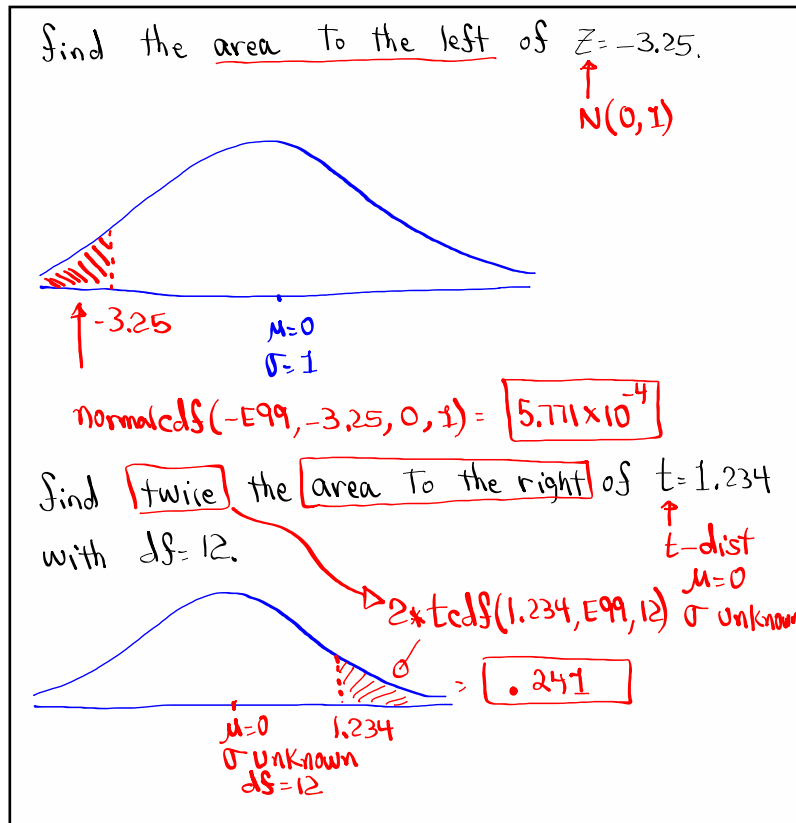 find the area to the left of Z=-3.25.
N(0,1)
-3.25
μ=0
σ=1
normalcdf(-E99,-3.25,0,1)= 5.771×10⁻⁴
find twice the area to the right of t=1.234
with df=12.
t-dist
μ=0
2*tcdf(1.234,E99,12) σ unknown
= .241
μ=0 1.234
σ unknown
df=12